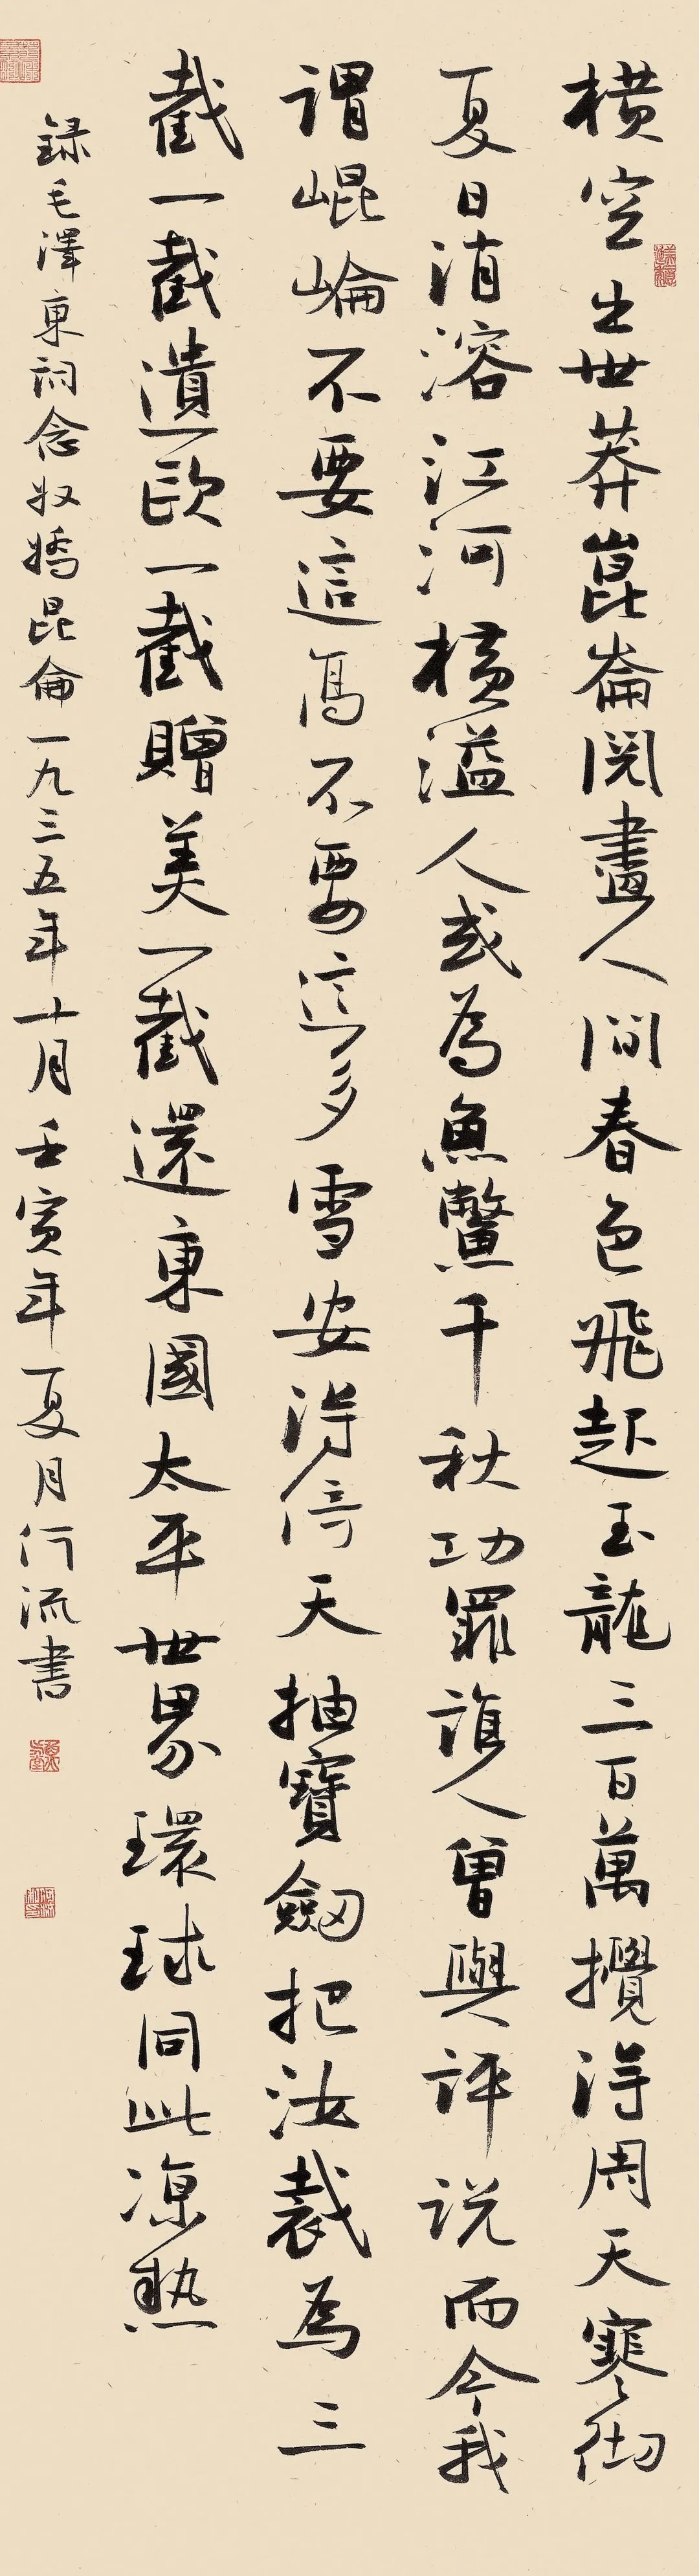 橫空出世莽崑崙閱盡人間春色飛起玉龍三百萬攪得周天寒徹
夏日消溶江河橫溢人或為魚鱉千秋功罪誰人曾與評説而今我
謂崐崘不要這高不要這多雪安得倚天抽寶劒把汝裁為三
截一截遺歐一截贈美一截還東國太平世界環球同此凉熱
録毛澤東詞念奴嬌昆侖一九三五年十月壬寅年夏月河流書